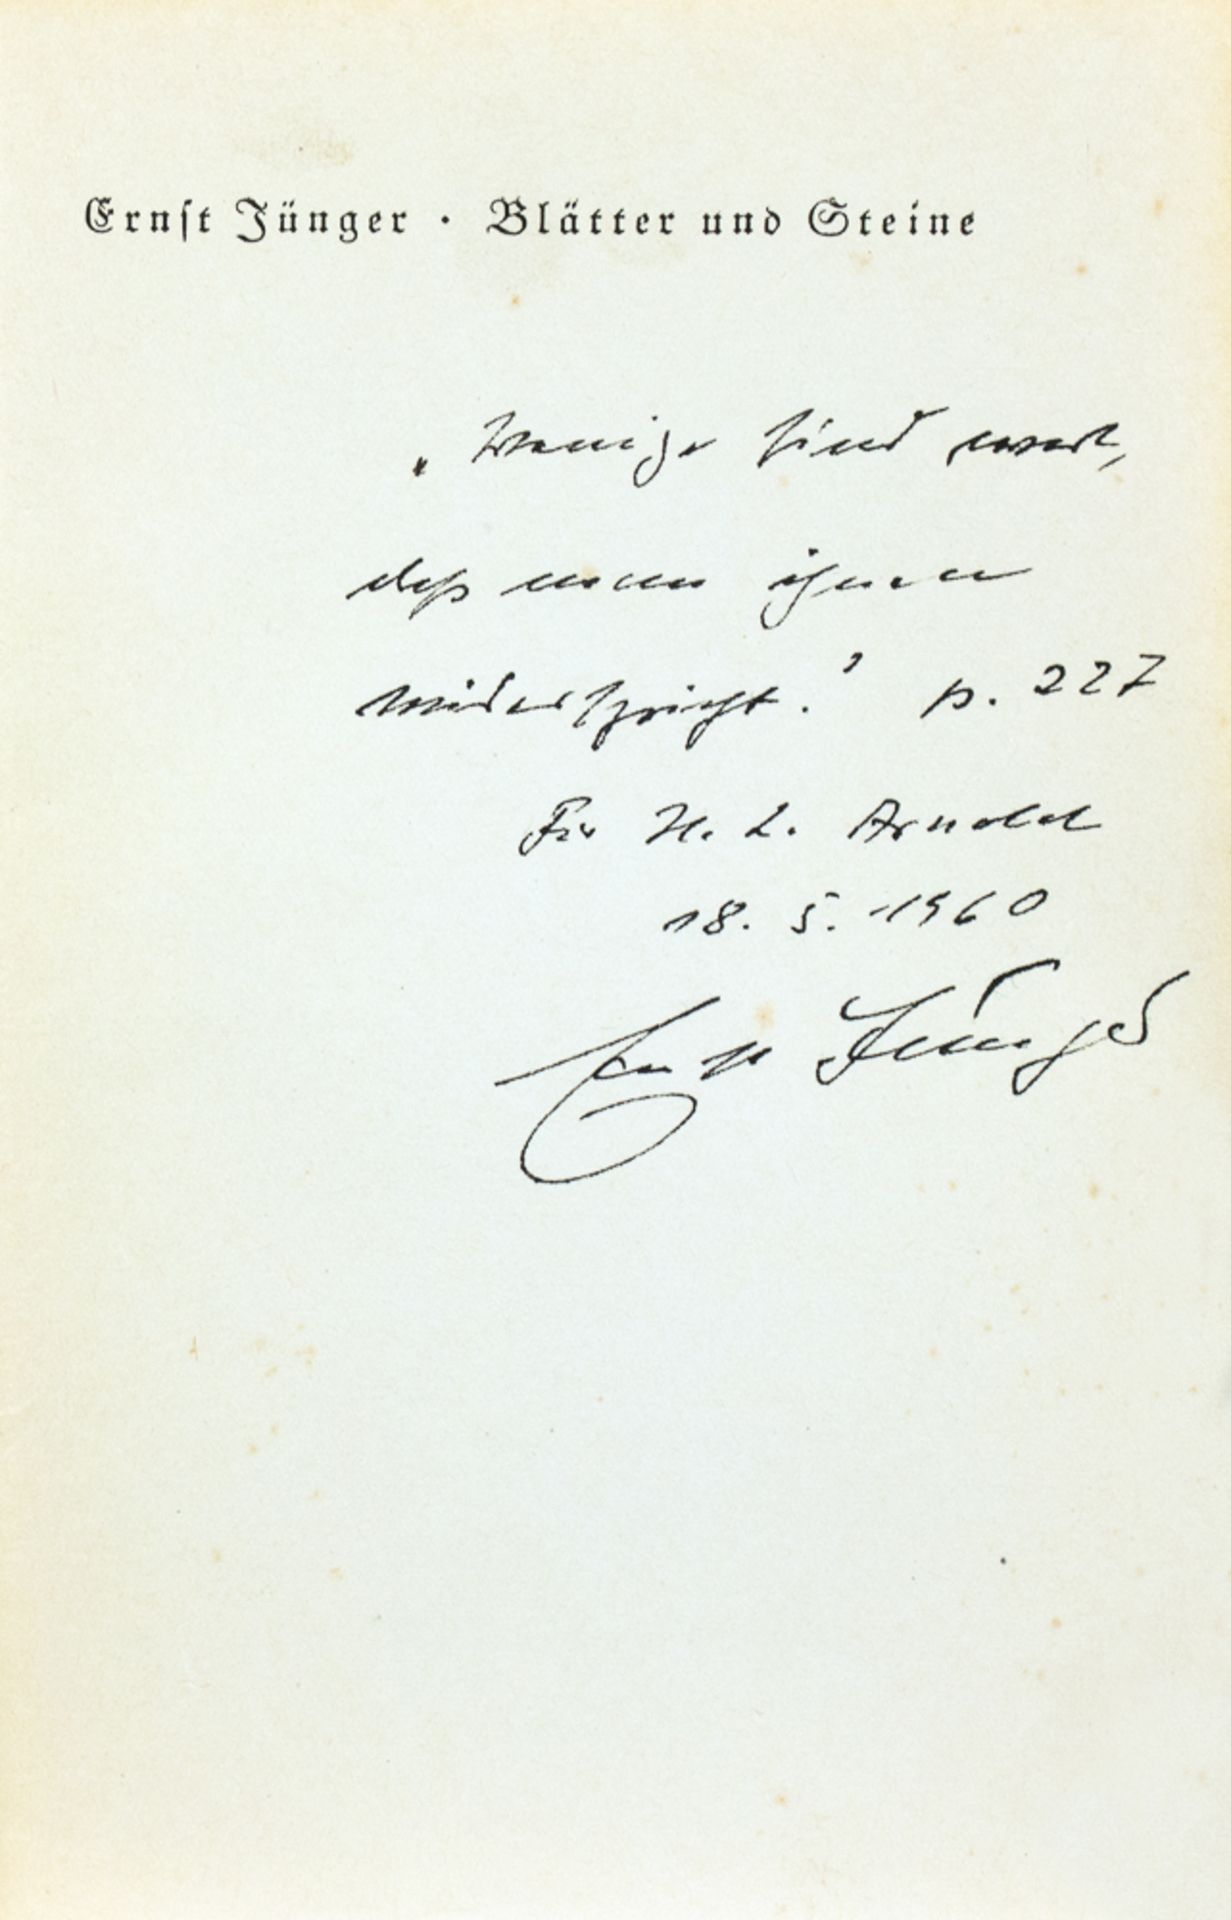 Ernſt Jünger · Blätter und Steine
„Wenige sind wert,
daß man ihnen
widerspricht." p. 227
Für H. L. Arnold
18. 5. 1960
Ernst Jünger